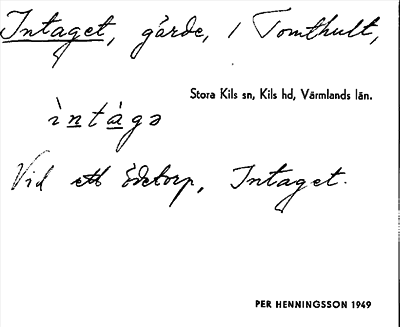 Intaget, gärde, i Tomthult,
Stora Kils sn, Kils hd, Värmlands län.
ìntàgə
Vid ett ödetorp, Intaget.
PER HENNINGSSON 1949